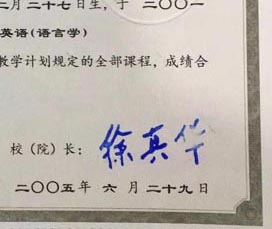 二月二十七日生，于 二〇〇一
英语(语言学)
教学计划规定的全部课程，成绩合
校（院）长： 徐真华
二〇〇五年 六 月 二十九日